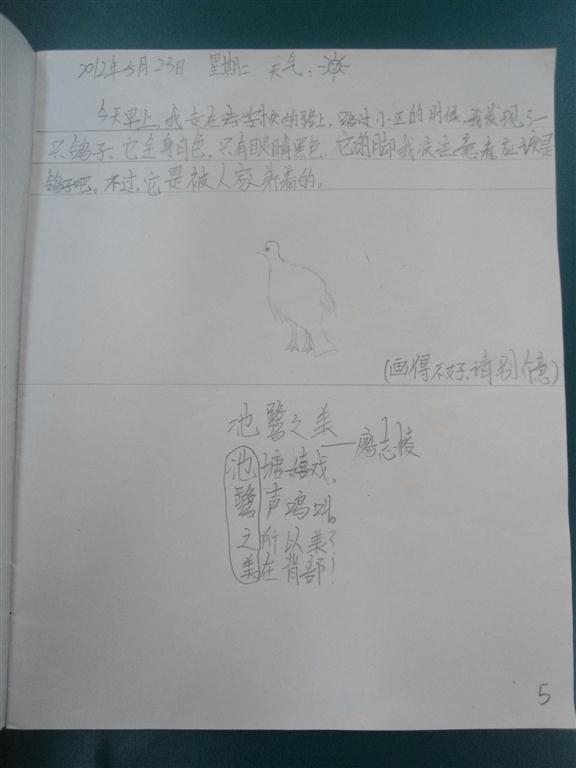 2012年5月23日 星期二 天气：
今天早上，我走在去学校的路上，路过小区的时候，我发现了一
只鸽子、它全身白色，只有眼睛黑色，它的脚我没注意看应该是
鸽子吧。不过，它是被人家养着的。
(画得不好、请别介意)
池鹭之美
——廖志凌
池塘嬉戏，
鹭声鸣叫。
之所以美？
美在背部！
5